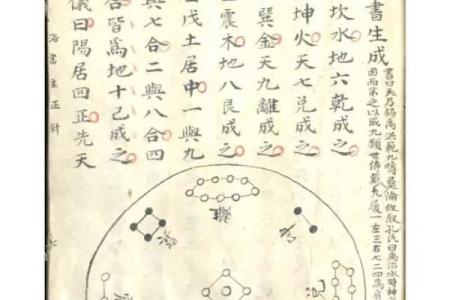 書生成
書曰天乃錫禹洪範九疇彝倫攸敘孔氏曰禹治水時神
因而第之以成九類世傳戴九履一左三右七二四為肩
坎水地六乾成之
坤火天七兌成之
巽金天九離成之
震木地八艮成之
戊土居中一與九
與七合二與八合四
合皆爲地十己成之
儀曰陽居四正先天
離
坤
兌